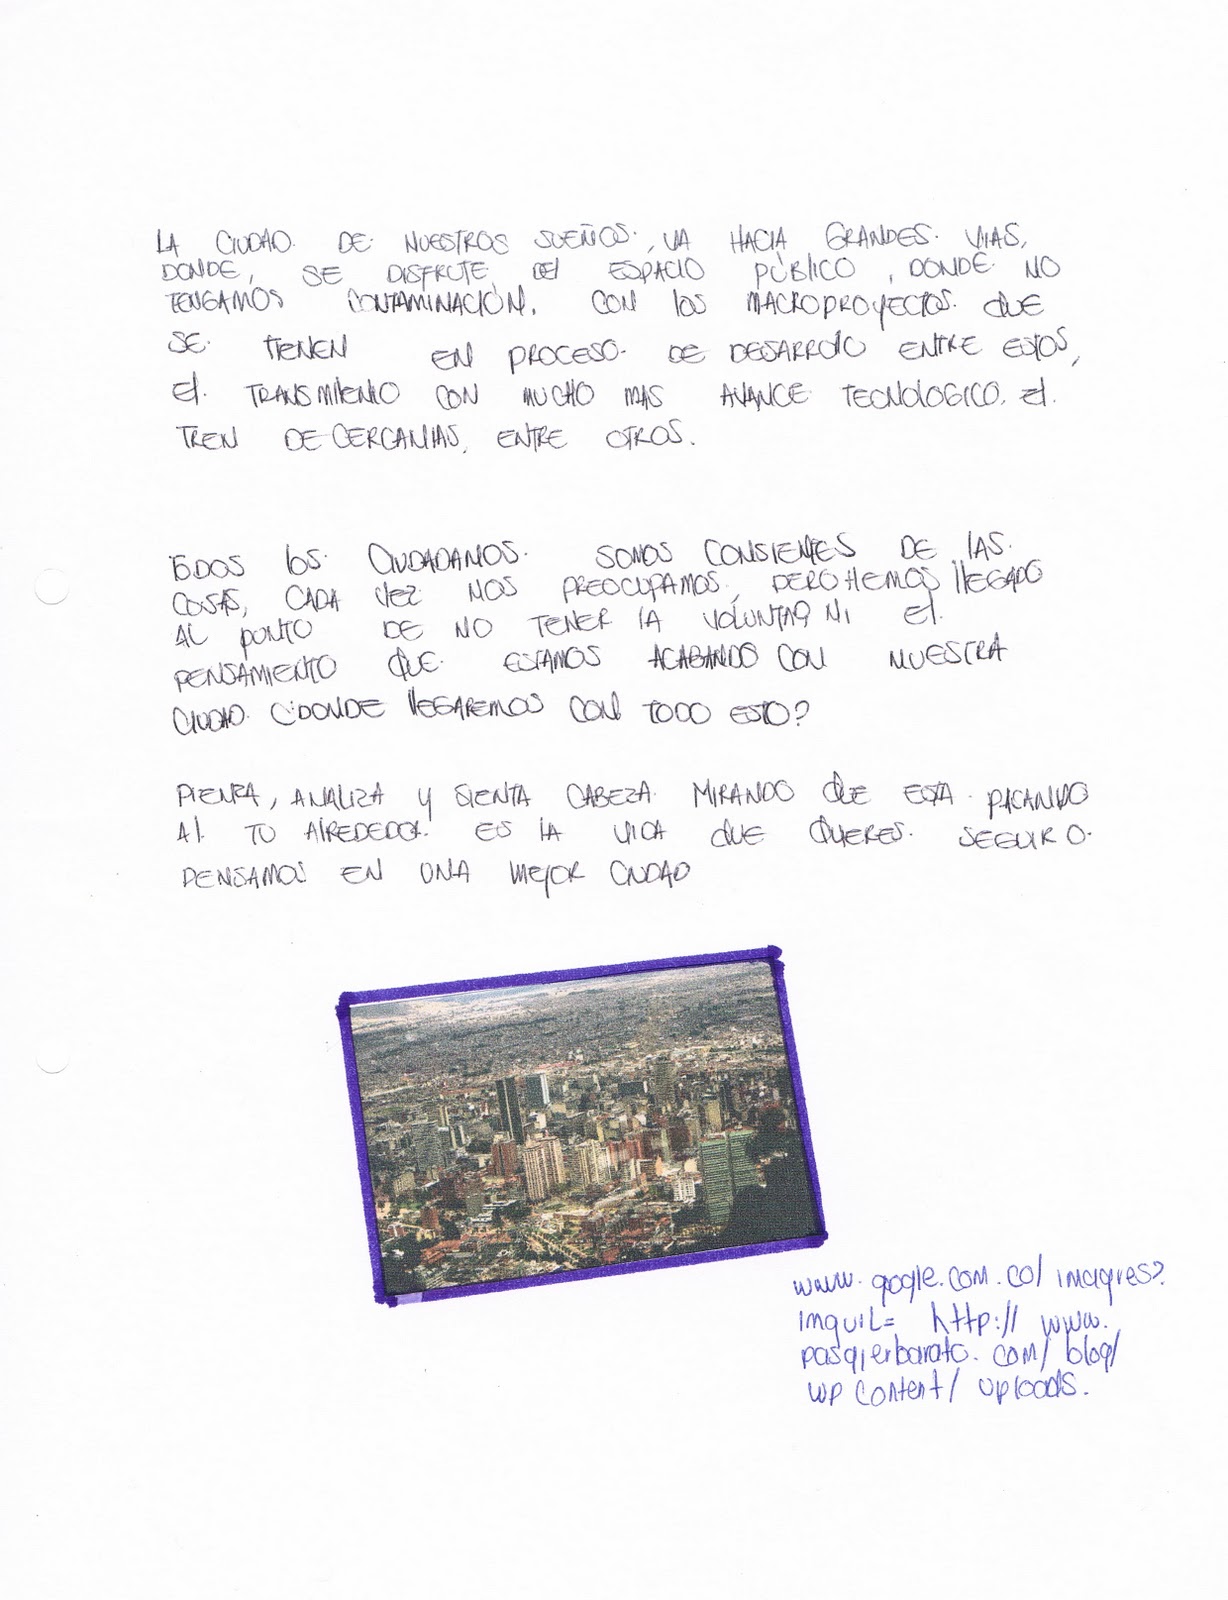 LA CIUDAD DE NUESTROS SUEÑOS, VA HACIA GRANDES VIAS,
DONDE, SE DISFRUTE DEL ESPACIO PÚBLICO, DONDE NO
TENGAMOS CONTAMINACIÓN, CON LOS MACROPROYECTOS QUE
SE TIENEN EN PROCESO DE DESARROLLO ENTRE ESTOS,
EL TRANSMILENIO CON MUCHO MAS AVANCE TECNOLOGICO, EL
TREN DE CERCANIAS, ENTRE OTROS.
TODOS LOS CIUDADANOS SOMOS CONSIENTES DE LAS
COSAS, CADA VEZ NOS PREOCUPAMOS, PERO HEMOS LLEGADO
AL PUNTO DE NO TENER LA VOLUNTAD NI EL
PENSAMIENTO QUE ESTAMOS ACABANDO CON NUESTRA
CIUDAD ¿DONDE LLEGAREMOS CON TODO ESTO?
PIENZA, ANALIZA Y SIENTA CABEZA MIRANDO QUE ESTA PACANDO
AL TU ALREDEDOR ES LA VIDA QUE QUIERES SEGUIR O
PENSAMOS EN UNA MEJOR CIUDAD
www.google.com.co/ imagres?
imguiL= http:// www.
pasqierbarato.com/ blog/
wp content/ uploads.